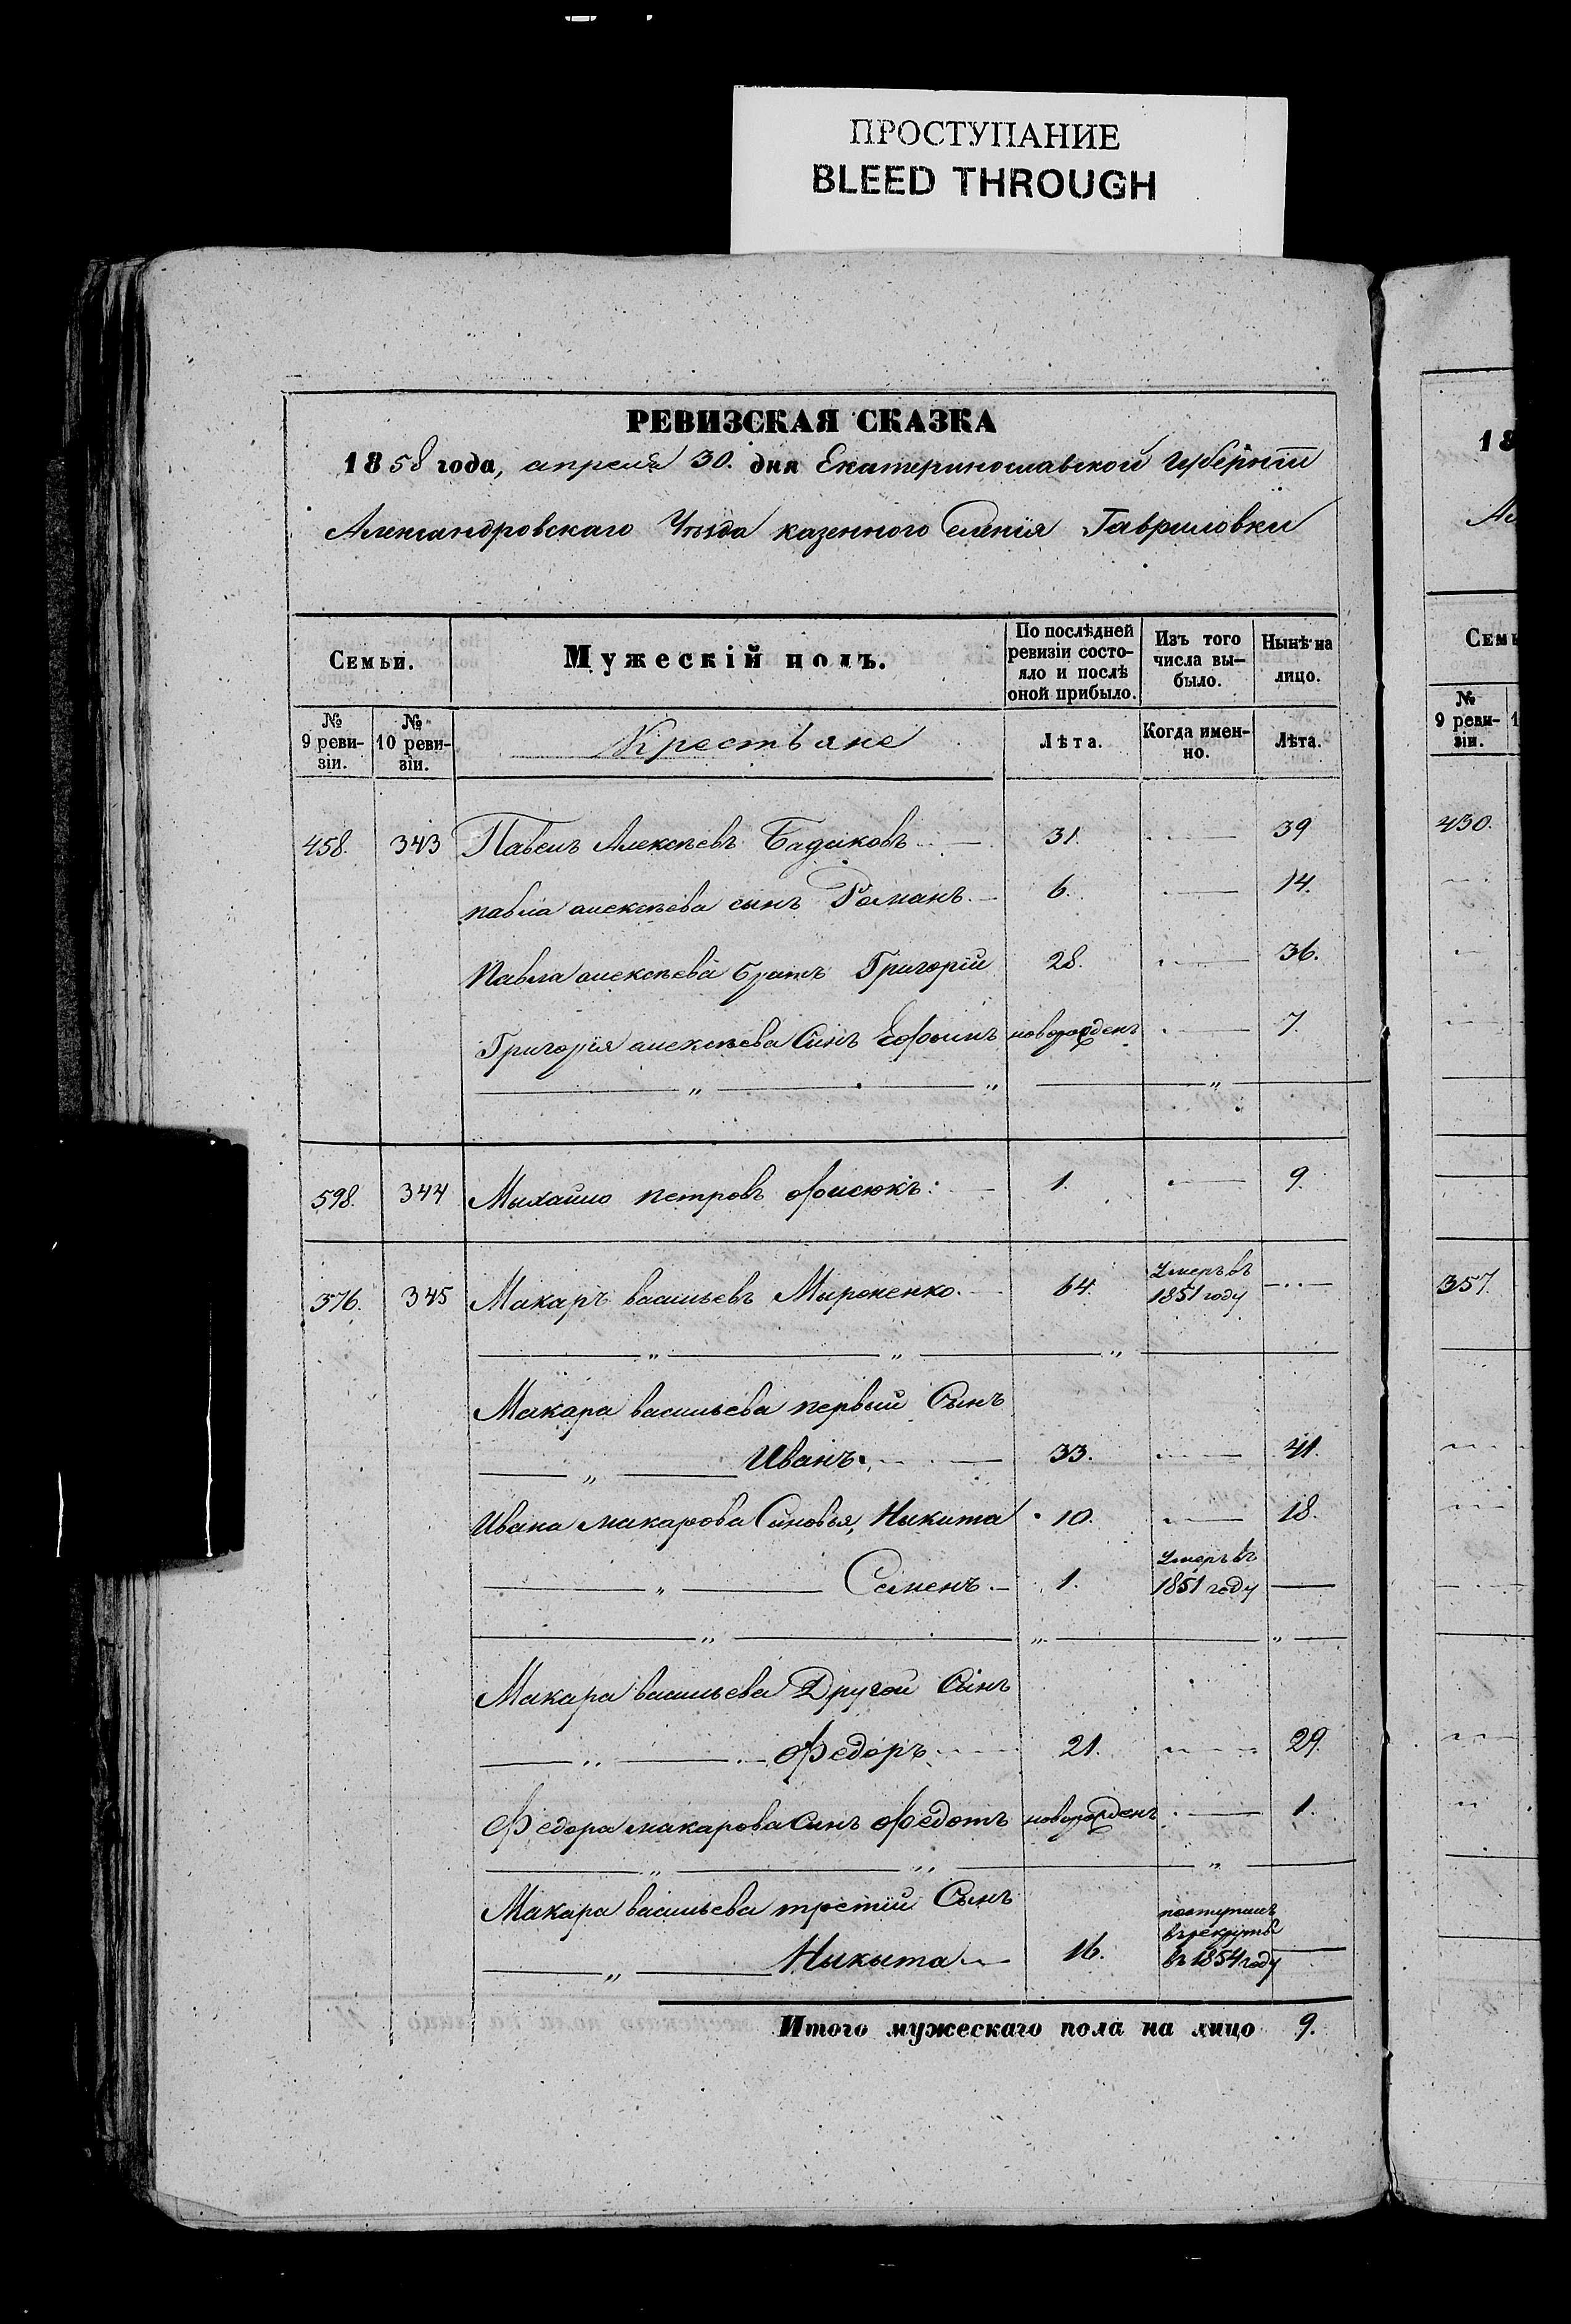 ПРОСТУПАНИЕ
BLEED THROUGH
РЕВИЗСКАЯ СКАЗКА
1858 года, апреля 30. дня Екатеринославской Губерніи
Александровскаго Уѣзда казенного селенія Гавриловки
Семьи. Мужескій полъ. По послѣдней ревизіи состо-яло и послѣ оной прибыло. Изъ того числа вы-было. Нынѣ на лицо.
№ 9 реви-зіи. № 10 реви-зіи. Крестьяне Лѣта. Когда имен-но. Лѣта.
458. 343 Павелъ Алексѣевъ 31. 39
павла алексѣева сынъ Романъ. 6. 14.
Павла алексѣева братъ Григорій 28. 36.
Григорія алексѣева Синъ Ефимъ новорожденъ 7.
598. 344 Михайло петровъ 1. 9.
376. 345 Макаръ васильевъ Мироненко. 64. Умеръ въ 1851 году
Макара васильева первый Сынъ
Иванъ. 33. 41.
Ивана макарова Синовья, Никита 10. 18.
Семенъ. 1. Умеръ въ 1851 году
Макара васильева Другой Синъ
Федоръ 21. 29.
Федора макарова Синъ Федотъ новорожденъ 1.
Макара васильева третій Сынъ
Никита 16. поступилъ въ рекруты въ 1854 году
Итого мужескаго пола на лицо 9.
18
Ал
Семь
№ 9 реви-зіи. 1
430.
357.